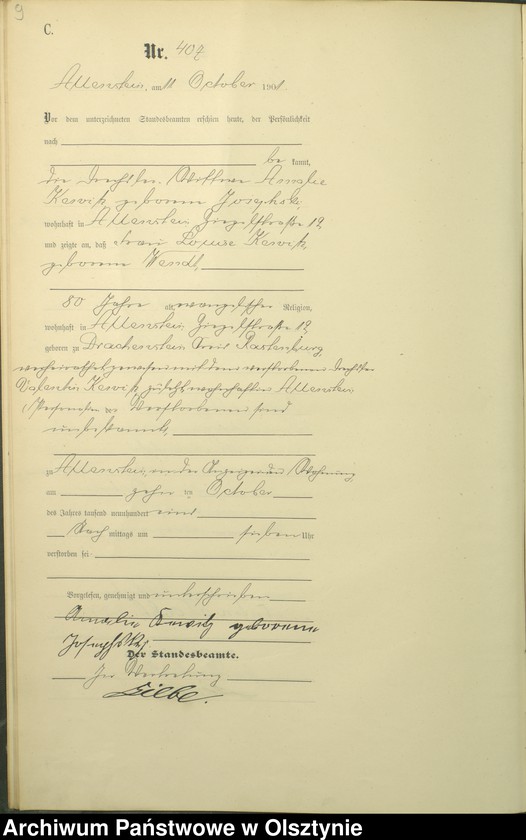 9
C.
Nr. 407
Allenstein, am 11 October 1901.
Vor dem unterzeichneten Standesbeamten erschien heute, der Persönlichkeit
nach
be kannt,
die Wittwe Amalie
geborene Josephski,
wohnhaft in Allenstein Ziegelstraße 12,
und zeigte an, daß Frau Louise
geborene Wendt,
80 Jahre alt, evangelischer Religion,
wohnhaft in Allenstein Ziegelstraße 12,
geboren zu Drachenstein Kreis Rastenburg
verheirathet gewesen mit dem verstorbenen
Valentin zuletzt wohnhaft in Allenstein
der Verstorbenen sind
unbekannt,
zu Allenstein in der Wohnung
am zehn ten October
des Jahres tausend neunhundert eins
Nach mittags um sieben Uhr
verstorben sei
Vorgelesen, genehmigt und unterschrieben
Amalie geborene
Der Standesbeamte.
In Vertretung
Archiwum Państwowe w Olsztynie